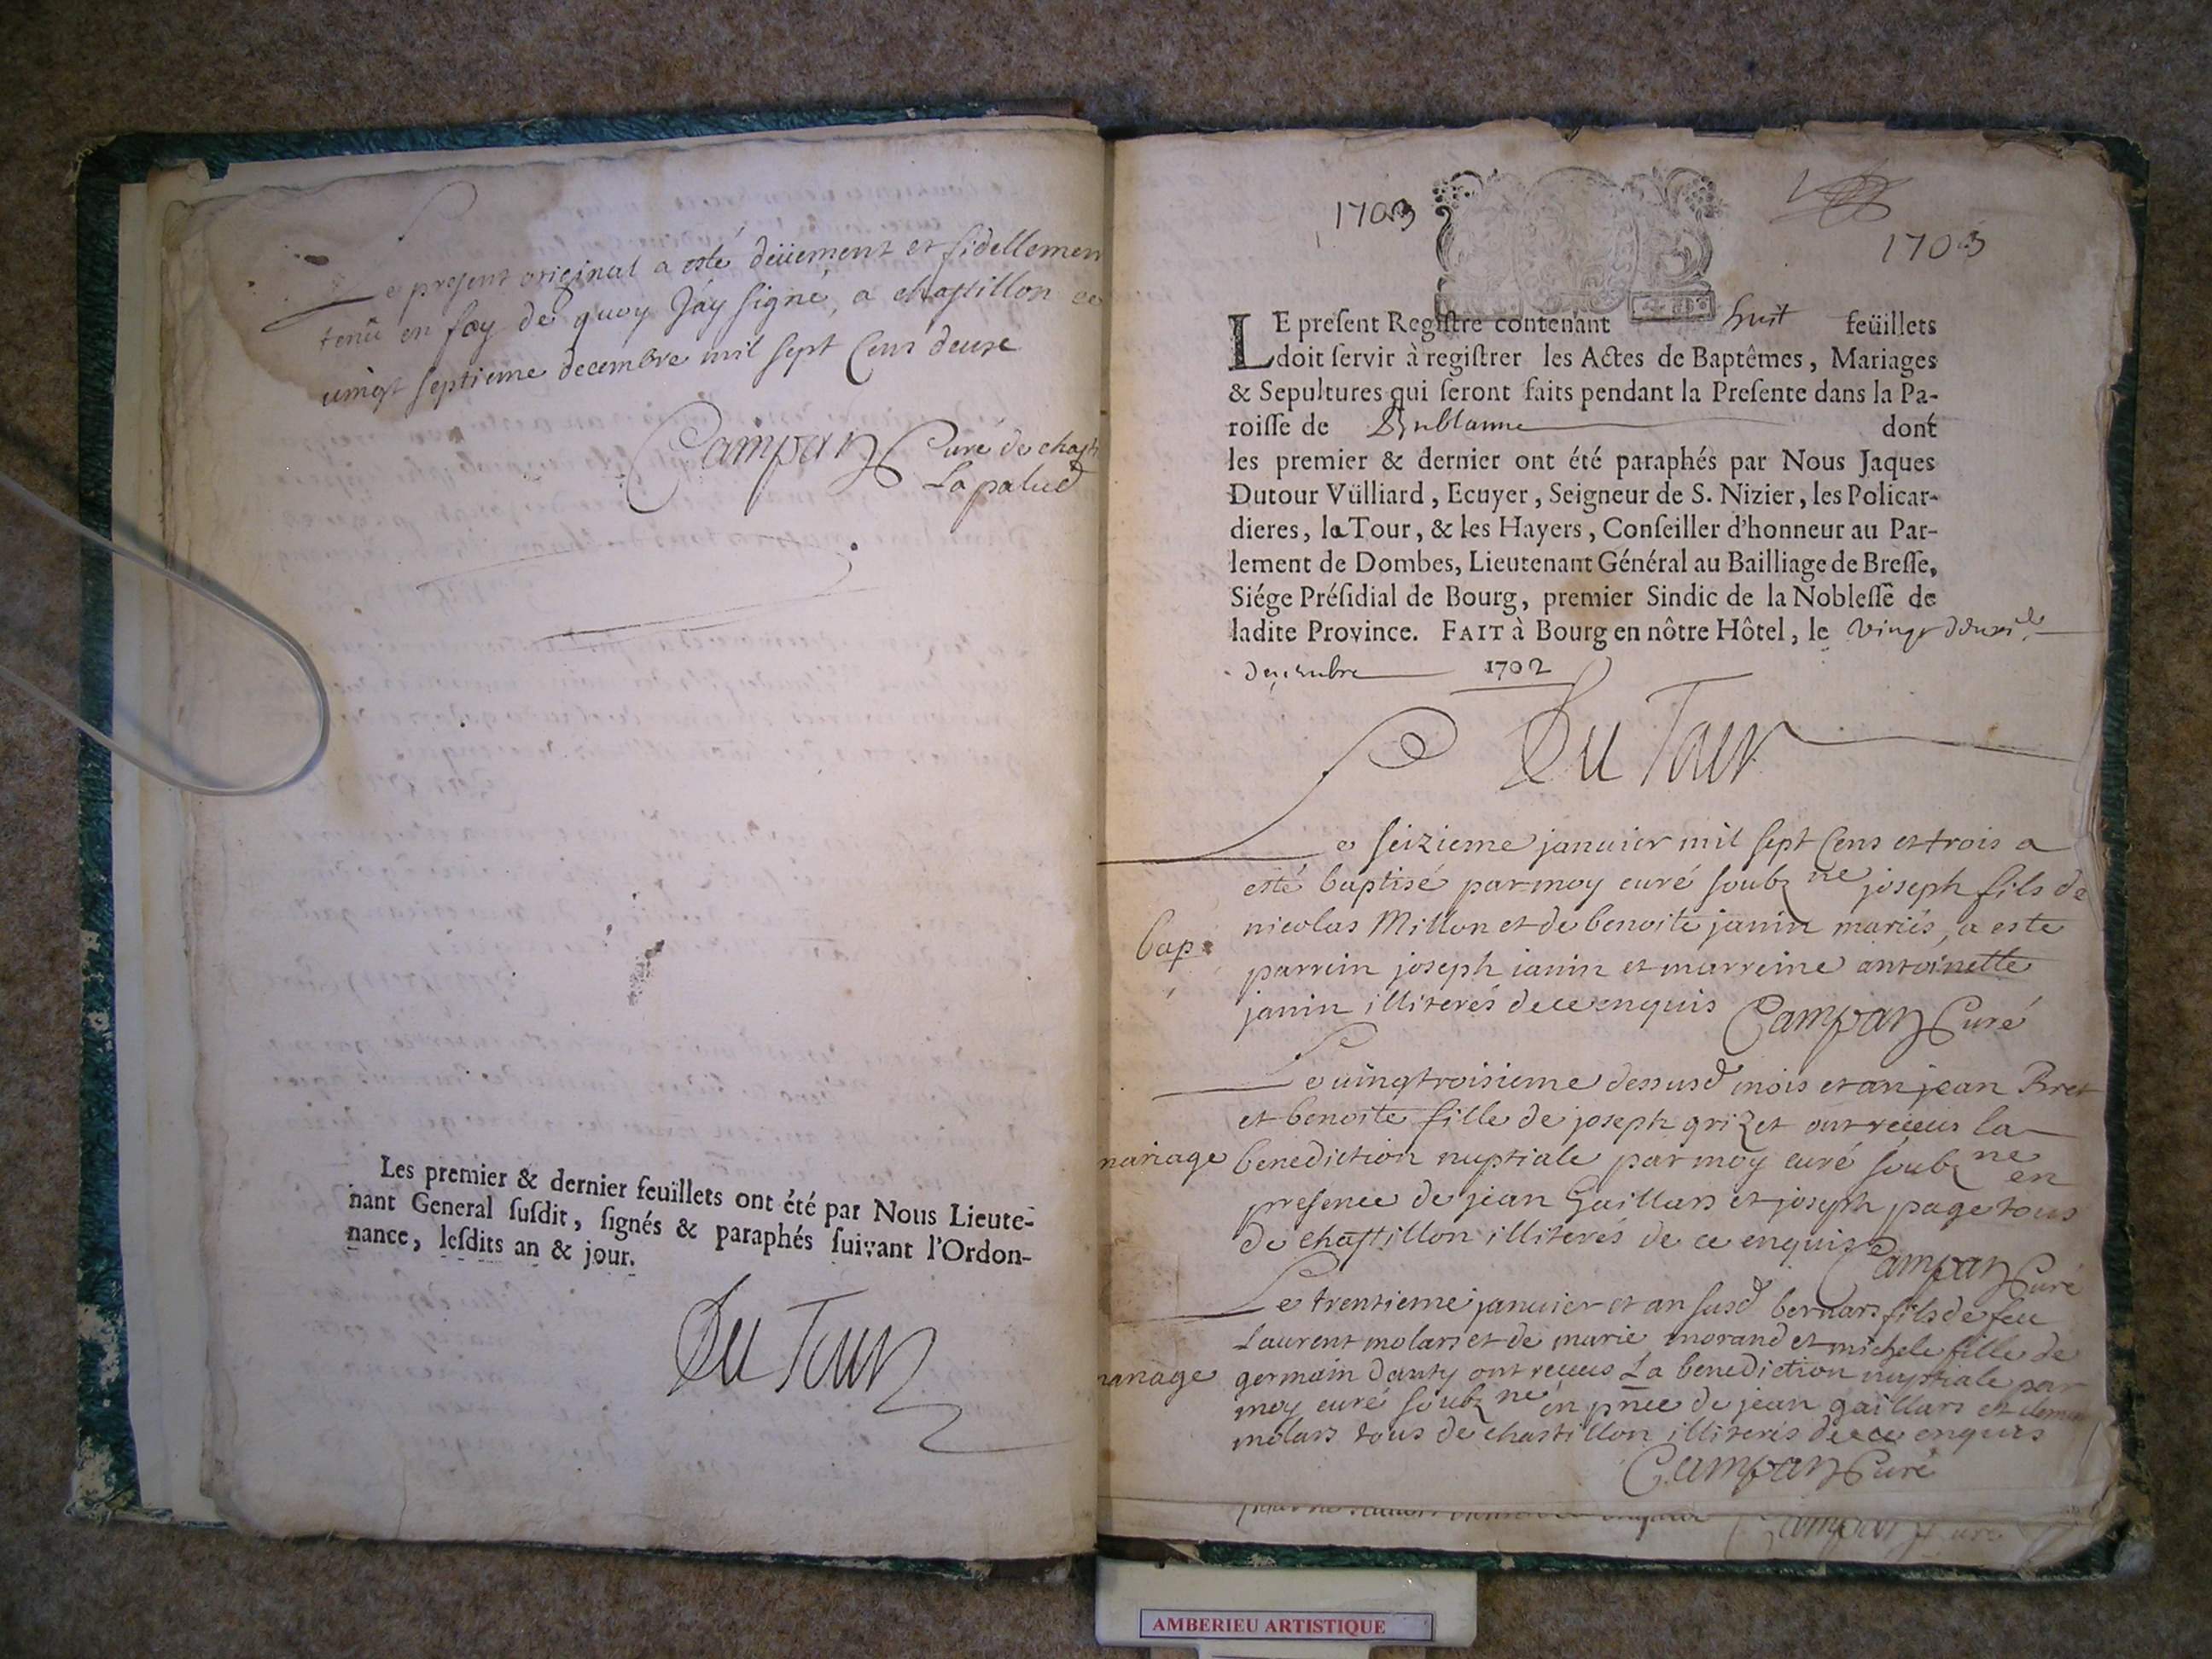 Le present original a esté deüement et fidellement
tenü en foy de quoy Jáy signé, a chastillon ce
uingt septieme decembre mil sept Cens deuxe
Campan Curé de chasti
Lapalud
Les premier & dernier feuillets ont été par Nous Lieute-
nant General ſuſdit, ſignés & paraphés ſuivant l'Ordon-
nance, leſdits an & jour.
Du Tour
1703
1703
LE preſent Regiſtre contenant huit feüillets
doit ſervir à regiſtrer les Actes de Baptêmes, Mariages
& Sepultures qui ſeront faits pendant la Preſente dans la Pa-
roiſſe de dont
les premier & dernier ont été paraphés par Nous Jaques
Dutour Vülliard, Ecuyer, Seigneur de S. Nizier, les Policar-
dieres, la Tour, & les Hayers, Conſeiller d'honneur au Par-
lement de Dombes, Lieutenant Général au Bailliage de Breſſe,
Siége Préſidial de Bourg, premier Sindic de la Nobleſſe de
ladite Province. FAIT à Bourg en nôtre Hôtel, le
decembre 1702
Du Tour
Le seizieme januier mil sept Cens et trois a
esté baptisé par moy curé soubz ne joseph fils de
bap: nicolas Millon et de benoite janin mariés, a este
parrein joseph ianin et marreine antoinette
janin illiterés de ce enquis Campan Curé
Le uingtroisieme dessusd mois et an jean Bret
et benoite fille de joseph grizet ont receus la
mariage benediction nuptiale par moy curé soubz ne en
presence de jean Gaillars et joseph page tous
de chastillon illiterés de ce enquis Campan Curé
Le trentieme januier et an susd bernars fils de feu
Laurent molars et de marie morand et michele fille de
mariage germain danty ont receus La benediction nuptiale par
moy curé soubz ne en pnce de jean gaillars et
molars tous de chastillon illiterés de ce enquis
Campan Curé
Campan Curé
AMBERIEU ARTISTIQUE